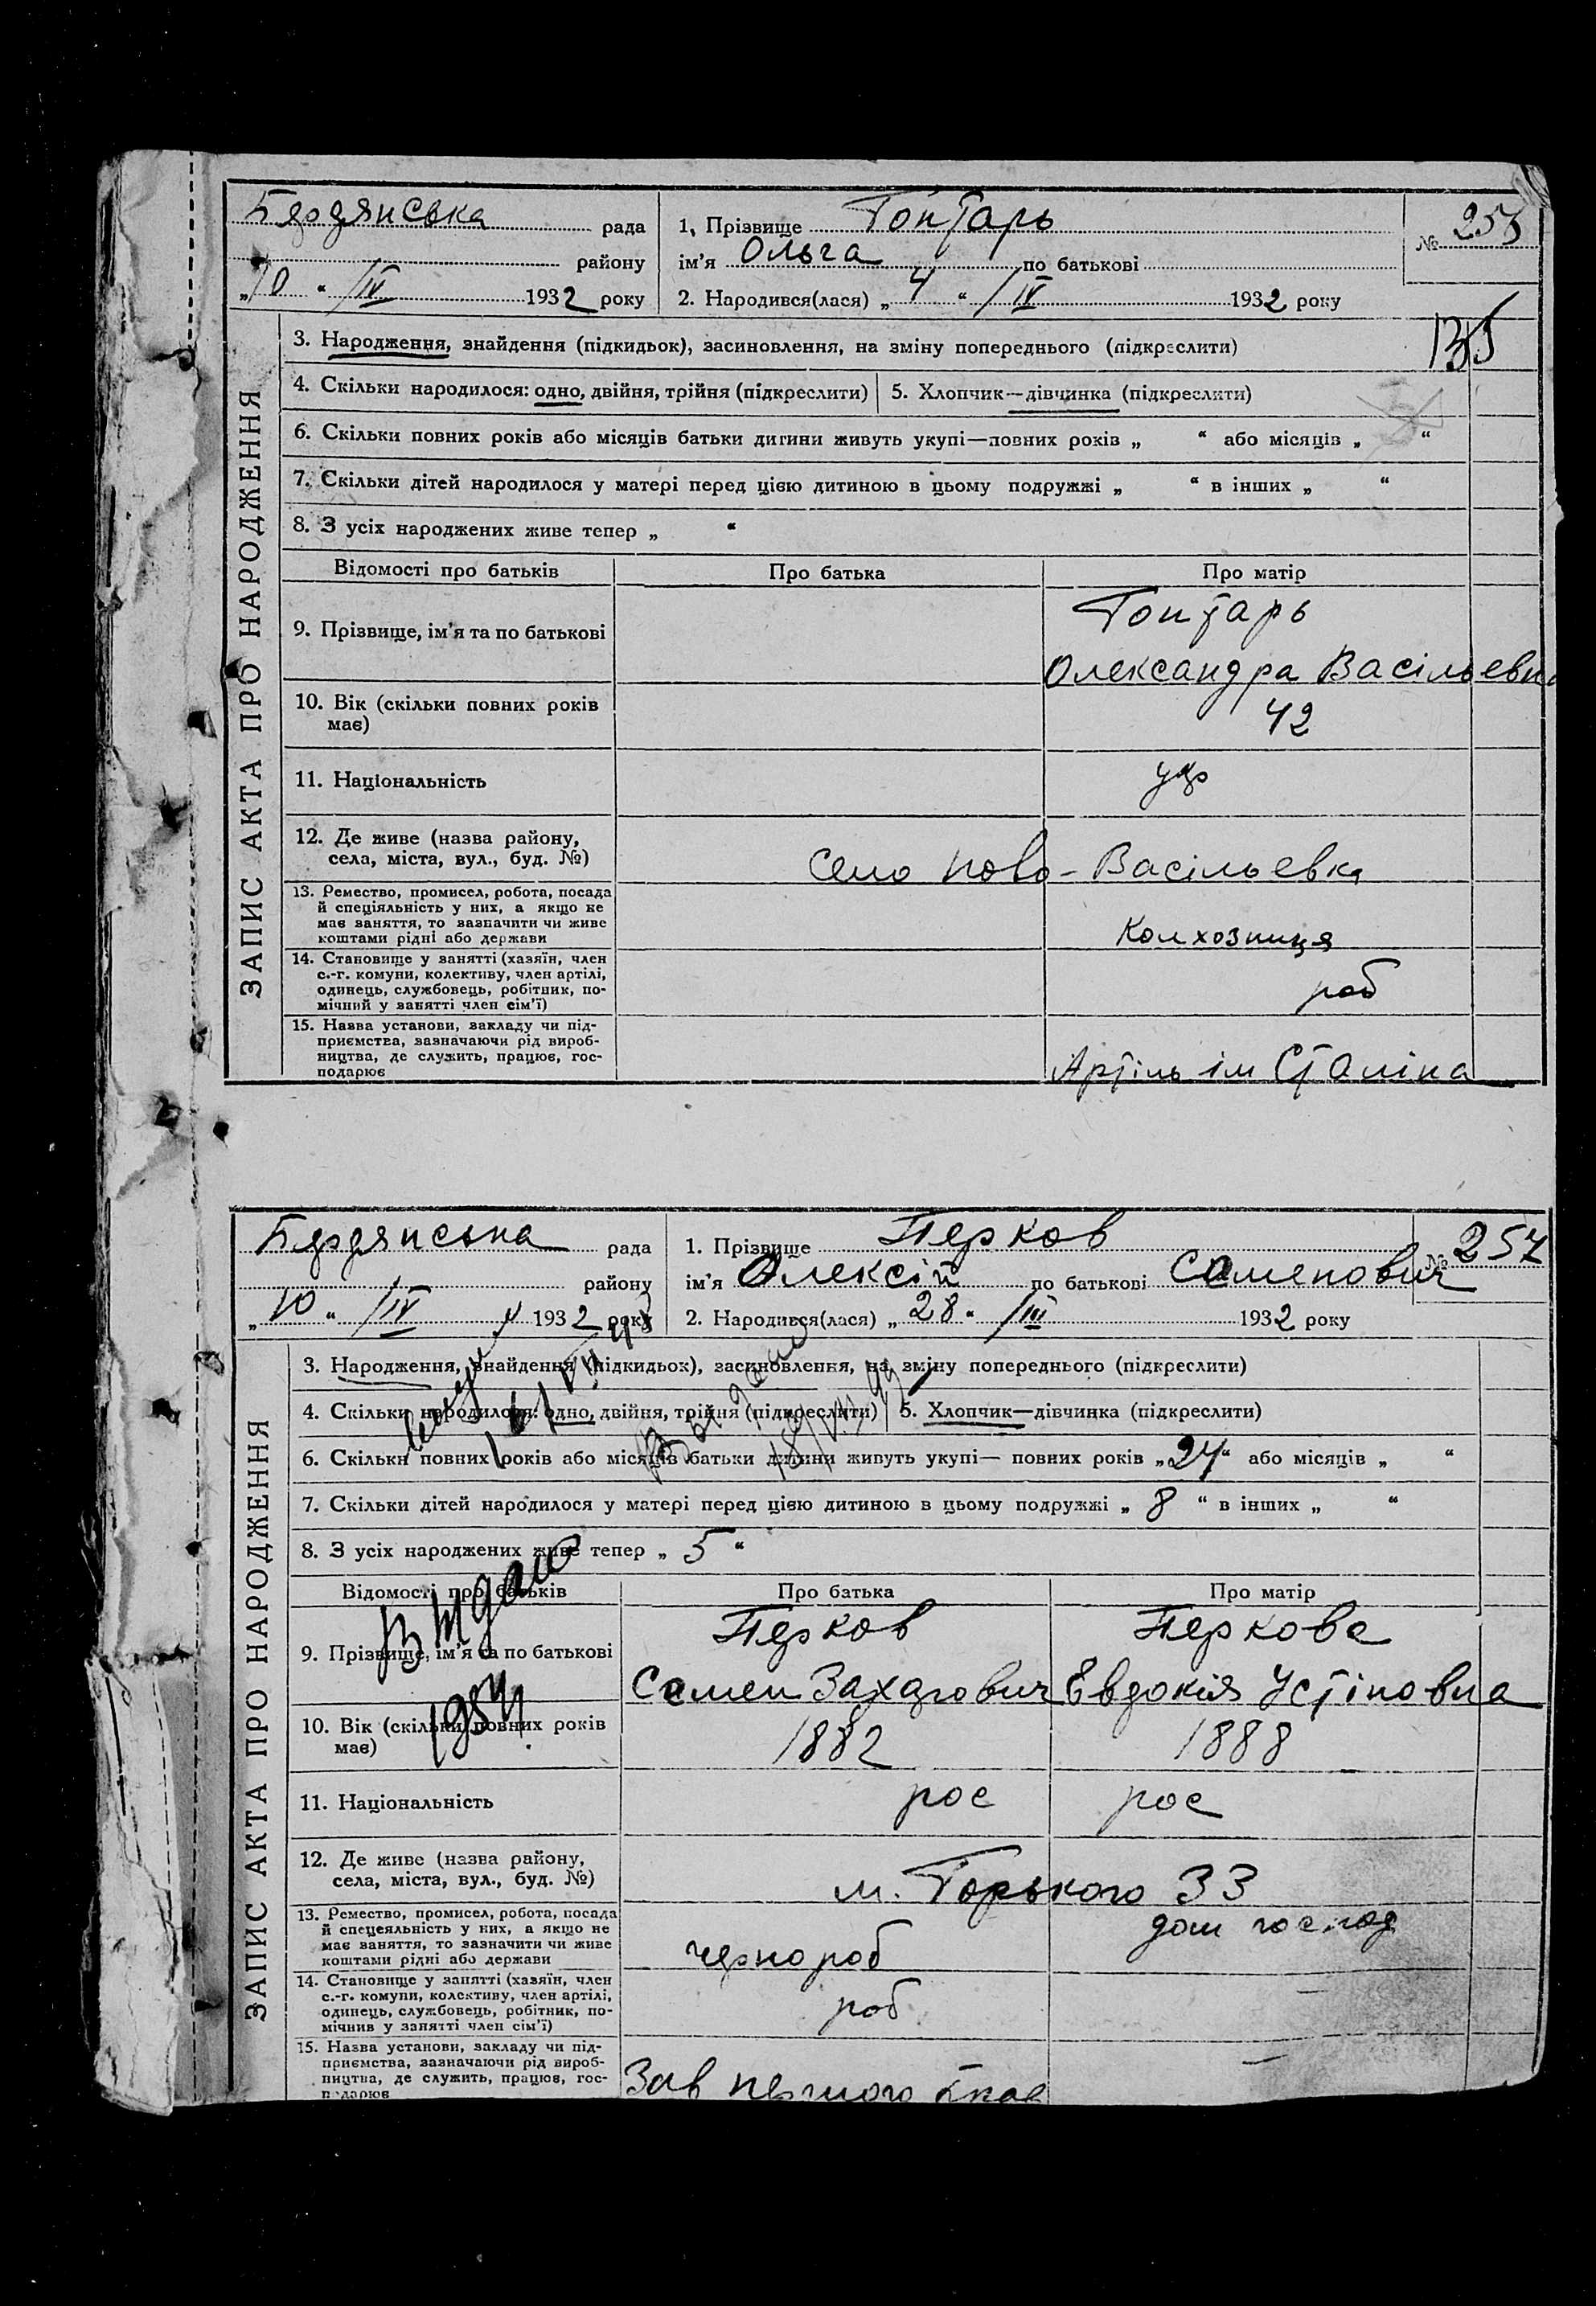 Бердянська рада
району
„10“ /IV 1932 року
1. Прізвище Гонтарь
ім'я Ольга по батькові
2. Народився(лася) „4“ /IV 1932 року
№
ЗАПИС АКТА ПРО НАРОДЖЕННЯ
3. Народження, знайдення (підкидьок), засиновлення, на зміну попереднього (підкреслити)
4. Скільки народилося: одно, двійня, трійня (підкреслити) 5. Хлопчик—дівчинка (підкреслити)
6. Скільки повних років або місяців батьки дитини живуть укупі—повних років „ “ або місяців „ “
7. Скільки дітей народилося у матері перед цією дитиною в цьому подружжі „ “ в інших „ “
8. З усіх народжених живе тепер „ “
Відомості про батьків Про батька Про матір
9. Прізвище, ім'я та по батькові
Гонтарь
Олександра Васільевна
10. Вік (скільки повних років
має)
42
11. Національність
укр
12. Де живе (назва району,
села, міста, вул., буд. №)
село Ново-Васільевка
13. Ремество, промисел, робота, посада
й спеціяльність у них, а якщо не
має заняття, то зазначити чи живе
коштами рідні або держави
Колхозниця
14. Становище у занятті (хазяїн, член
с.-г. комуни, колективу, член артілі,
одинець, службовець, робітник, по-
мічний у занятті член сім'ї)
роб
15. Назва установи, закладу чи під-
приємства, зазначаючи рід вироб-
ництва, де служить, працює, гос-
подарює
Артіль ім Сталіна
Бердянська рада
району
„10“ /IV 1932 року
1. Прізвище Перков
ім'я Олексій по батькові Семенович
2. Народився(лася) „28“ /III 1932 року
№ 257
ЗАПИС АКТА ПРО НАРОДЖЕННЯ
3. Народження, знайдення (підкидьок), засиновлення, на зміну попереднього (підкреслити)
4. Скільки народилося: одно, двійня, трійня (підкреслити) 5. Хлопчик—дівчинка (підкреслити)
6. Скільки повних років або місяців батьки дитини живуть укупі— повних років „24“ або місяців „ “
7. Скільки дітей народилося у матері перед цією дитиною в цьому подружжі „ 8 “ в інших „ “
8. З усіх народжених живе тепер „ 5 “
Выдано
1954
Відомості про батьків Про батька Про матір
9. Прізвище, ім'я та по батькові
Перков
Семен Захарович
Перкова
Евдокія Устіновна
10. Вік (скільки повних років
має)
1882 1888
11. Національність
рос рос
12. Де живе (назва району,
села, міста, вул., буд. №)
м. Горького 33
13. Ремество, промисел, робота, посада
й спецеяльність у них, а якщо не
має заняття, то зазначити чи живе
коштами рідні або держави
чернороб
дом господ
14. Становище у занятті (хазяїн, член
с.-г. комуни, колективу, член артілі,
одинець, службовець, робітник, по-
мічнив у занятті член сім'ї)
роб
—
15. Назва установи, закладу чи під-
приємства, зазначаючи рід вироб-
ництва, де служить, працює, гос-
подарює
Зав
—